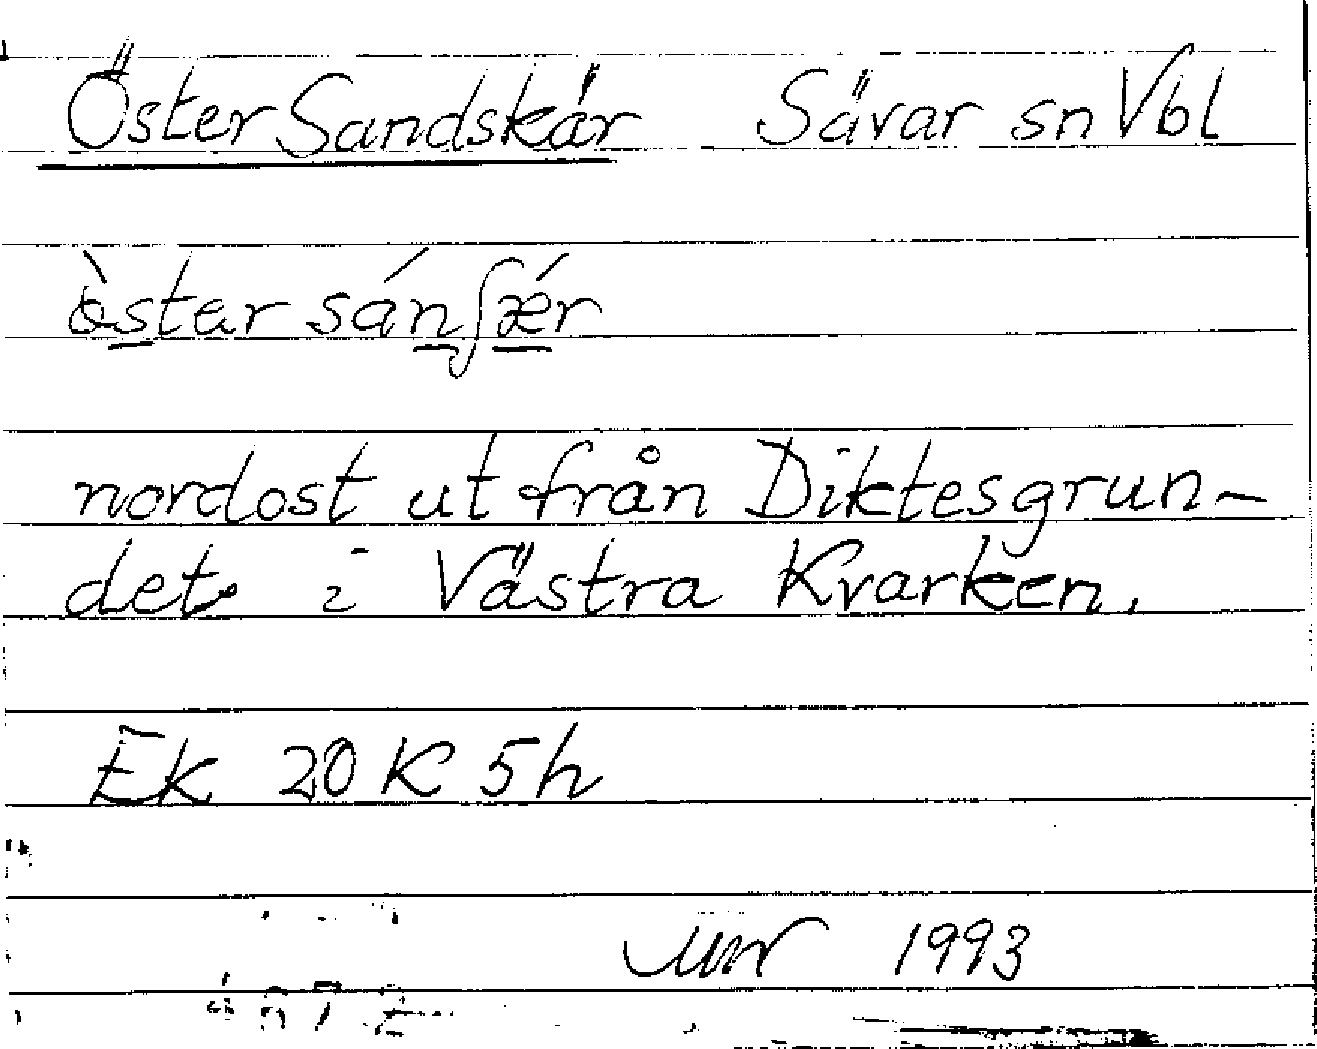 Öster Sandskär Sävar sn Vbl
ɵ̀star sánʃǽr
nordost ut från Diktesgrun-
det i Västra Kvarken.
Ek 20 K 5h
1993